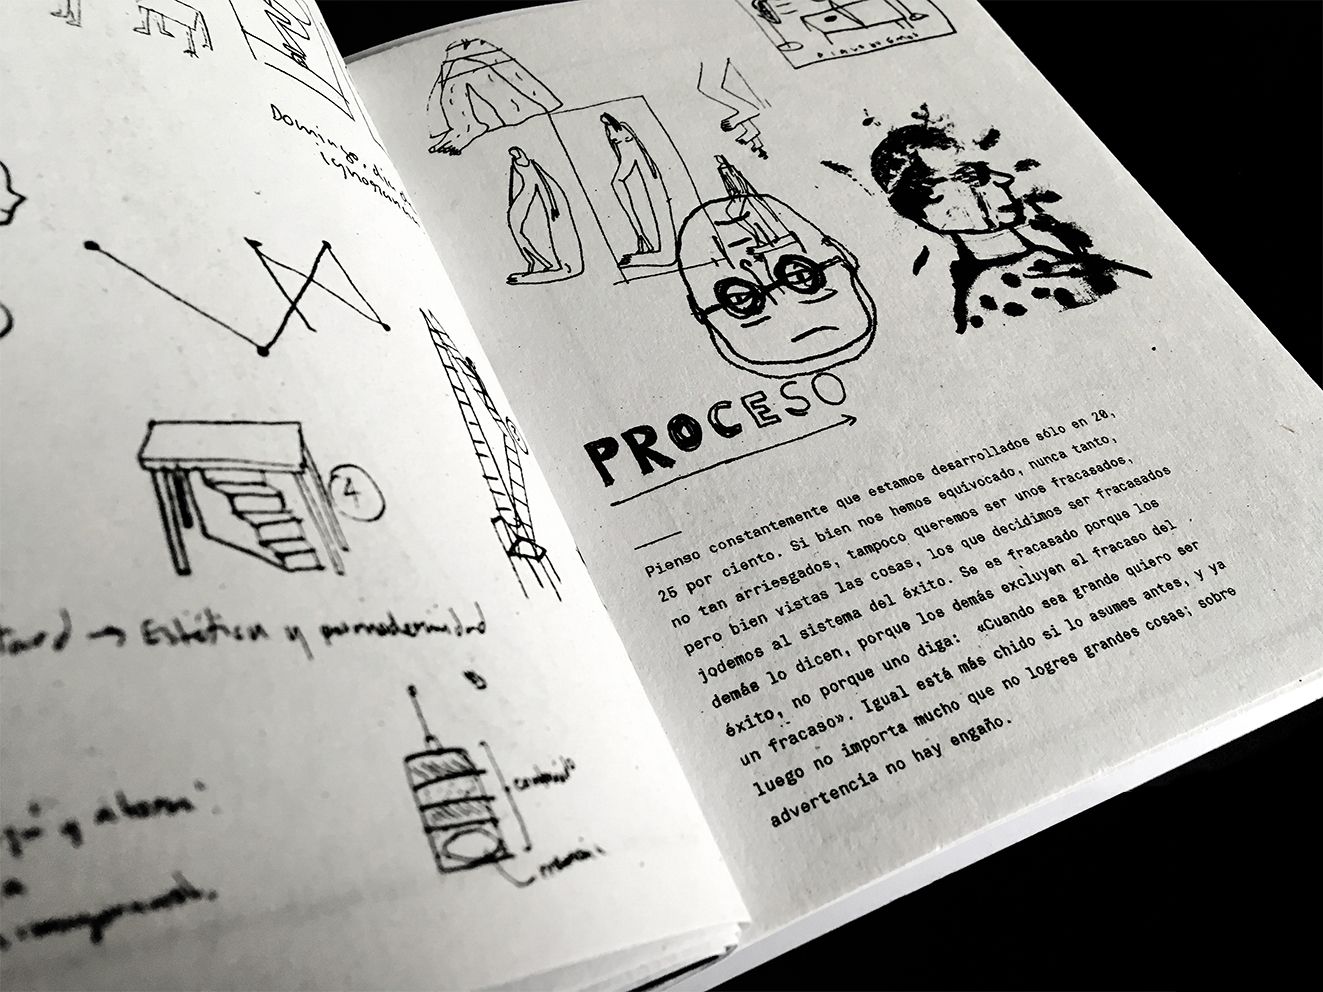 Domingo, día de
ignorancia
4
Estética y posmodernidad
PROCESO
Pienso constantemente que estamos desarrollados sólo en 20,
25 por ciento. Si bien nos hemos equivocado, nunca tanto,
no tan arriesgados, tampoco queremos ser unos fracasados,
pero bien vistas las cosas, los que decidimos ser fracasados
jodemos al sistema del éxito. Se es fracasado porque los
demás lo dicen, porque los demás excluyen el fracaso del
éxito, no porque uno diga: «Cuando sea grande quiero ser
un fracaso». Igual está más chido si lo asumes antes, y ya
luego no importa mucho que no logres grandes cosas; sobre
advertencia no hay engaño.